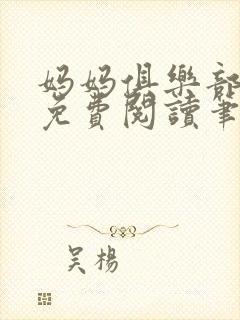 妈妈俱樂部
免費閱讀筆
吴楊